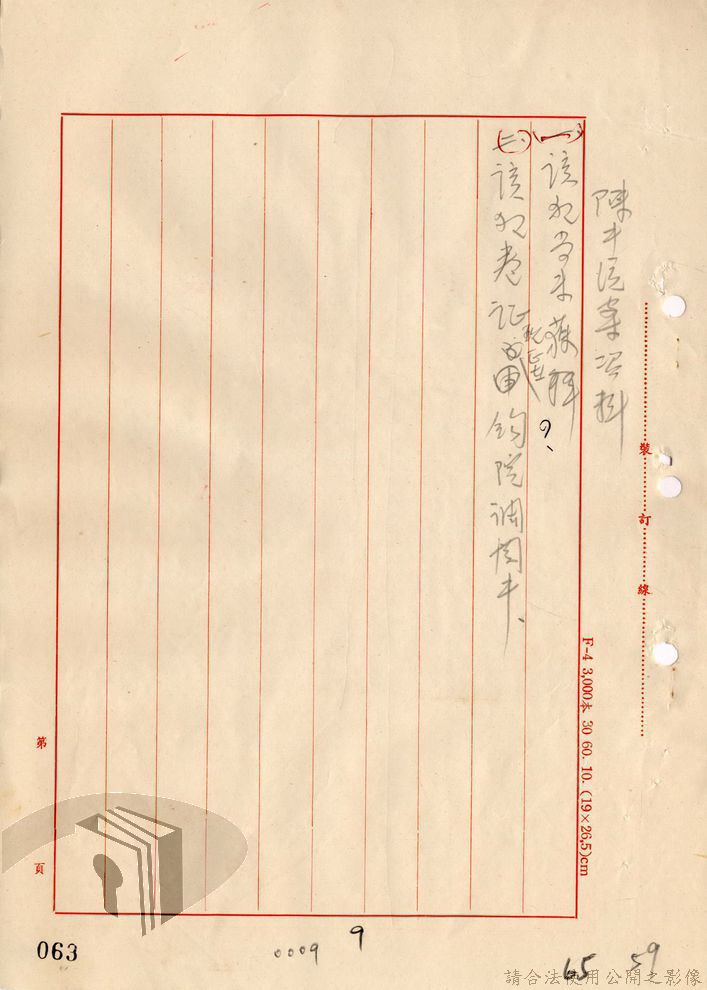 陳中信案资料
㈠該犯尚未获释？、
㈡該犯卷证呈鈞院調閱中、
裝訂線
F-4 3,000本 30 60. 10. (19×26.5)cm
第 頁
063
0009
9
65
59
請合法使用公開之影像